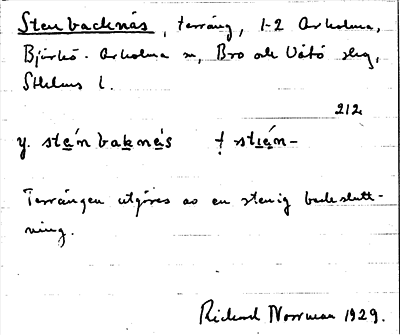 Stenbacknäs, terräng, 1-2 Arholma,
Björkö-Arholma sn, Bro och Vätö slg,
Sthlms l.
212
y. sté̱n ba̱knä̱s † sti̱é̱n-
Terrängen utgöres av en stenig backslutt-
ning.
Rickard Norrman 1929.